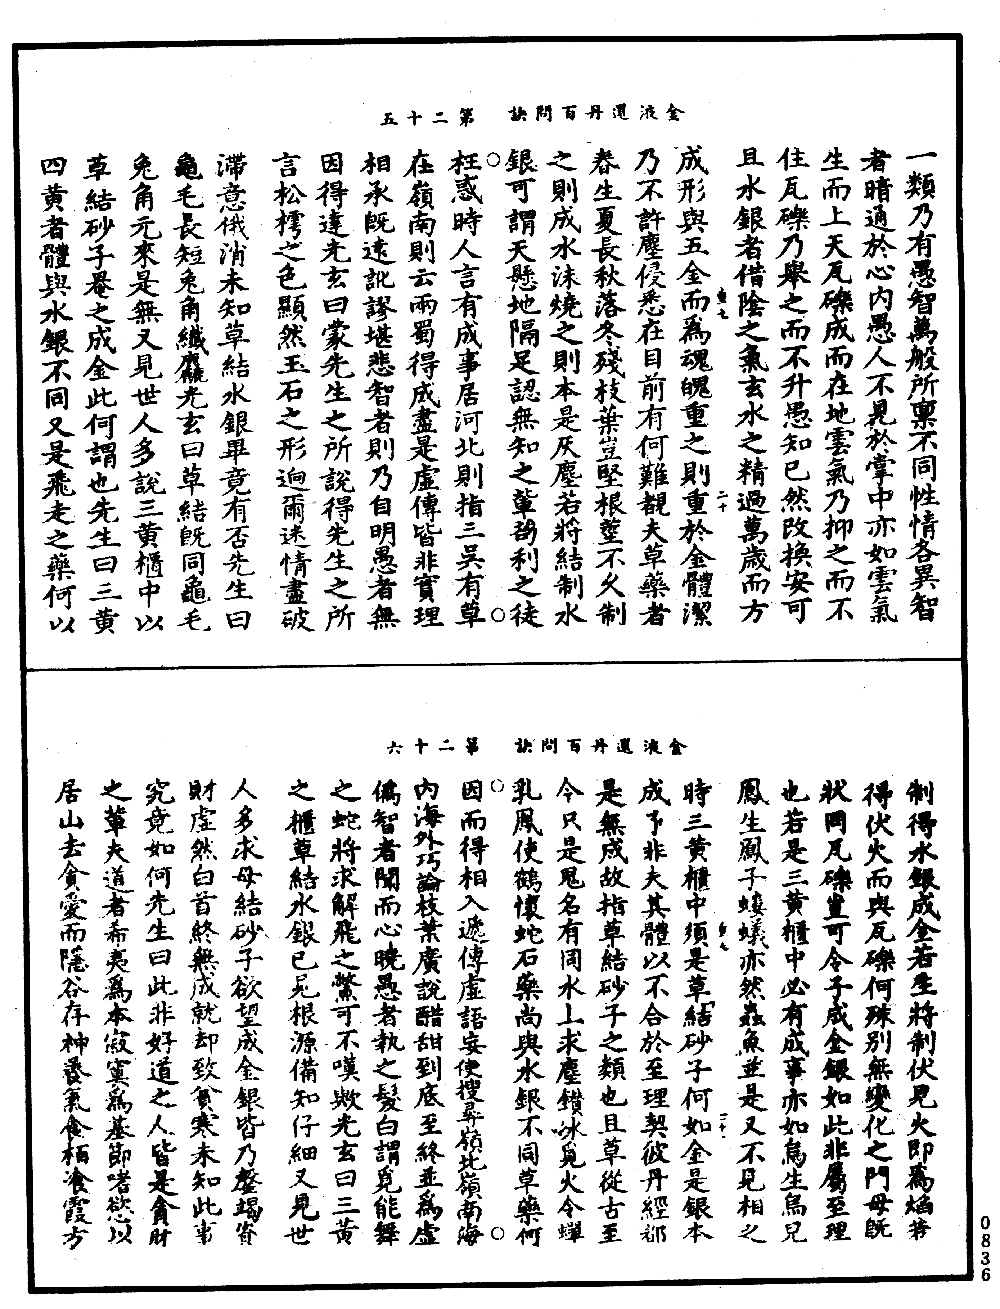 金液還丹百問訣　第二十五
一類乃有愚智萬般所稟不同性情各異智
者暗通於心內愚人不見於掌中亦如雲氣
生而上天瓦礫成而在地雲氣乃抑之而不
住瓦礫乃舉之而不升愚知已然改換安可
且水銀者借陰之氣玄水之精過萬歲而方
成形與五金而為魂魄重之則重於金體潔
乃不許塵侵悉在目前有何難覩夫草藥者
春生夏長秋落冬殘枝葉豈堅根莖不久制
之則成水沫燒之則本是灰塵若將結制水
銀可謂天懸地隔足認無知之輩矜利之徒
枉惑時人言有成事居河北則指三吳有草
在嶺南則云兩蜀得成盡是虛傳皆非實理
相承既遠訛謬堪悲智者則乃自明愚者無
因得達光玄曰蒙先生之所說得先生之所
言松樗之色顯然玉石之形迥爾迷情盡破
滯意俄消未知草結水銀畢竟有否先生曰
龜毛長短兔角纖麤光玄曰草結既同龜毛
兔角元來是無又見世人多說三黃櫃中以
草結砂子養之成金此何謂也先生曰三黃
四黃者體與水銀不同又是飛走之藥何以
金液還丹百問訣　第二十六
制得水銀成金若生將制伏見火即為焰若
得伏火而與瓦礫何殊別無變化之門母既
狀同瓦礫豈可令子成金銀如此非屬至理
也若是三黃櫃中必有成事亦如烏生烏兒
鳳生鳳子螻蟻亦然蟲魚並是又不見相之
時三黃櫃中須是草結砂子何如金是銀本
成予非夫其體以不合於至理契彼丹經都
是無成故指草結砂子之類也且草從古至
今只是鬼名有同水上求塵鑽冰覓火令蟬
乳鳳使鶴懷蛇石藥尚與水銀不同草藥何
因而得相入遞傳虛語妄使搜尋嶺北嶺南海
內海外巧論枝葉廣說醋甜到底至終並為虛
偽智者聞而心曉愚者執之髮白謂覓能舞
之蛇將求解飛之鱉可不嘆歟光玄曰三黃
之櫃草結水銀已見根源備知仔細又見世
人多求母結砂子欲望成金銀皆乃罄竭資
財虛然白首終無成就却致貧寒未知此事
究竟如何先生曰此非好道之人皆是貪財
之輩夫道者希夷為本寂寞為基節嗜慾以
居山去貪愛而隱谷存神養氣食栢飡霞方
0836